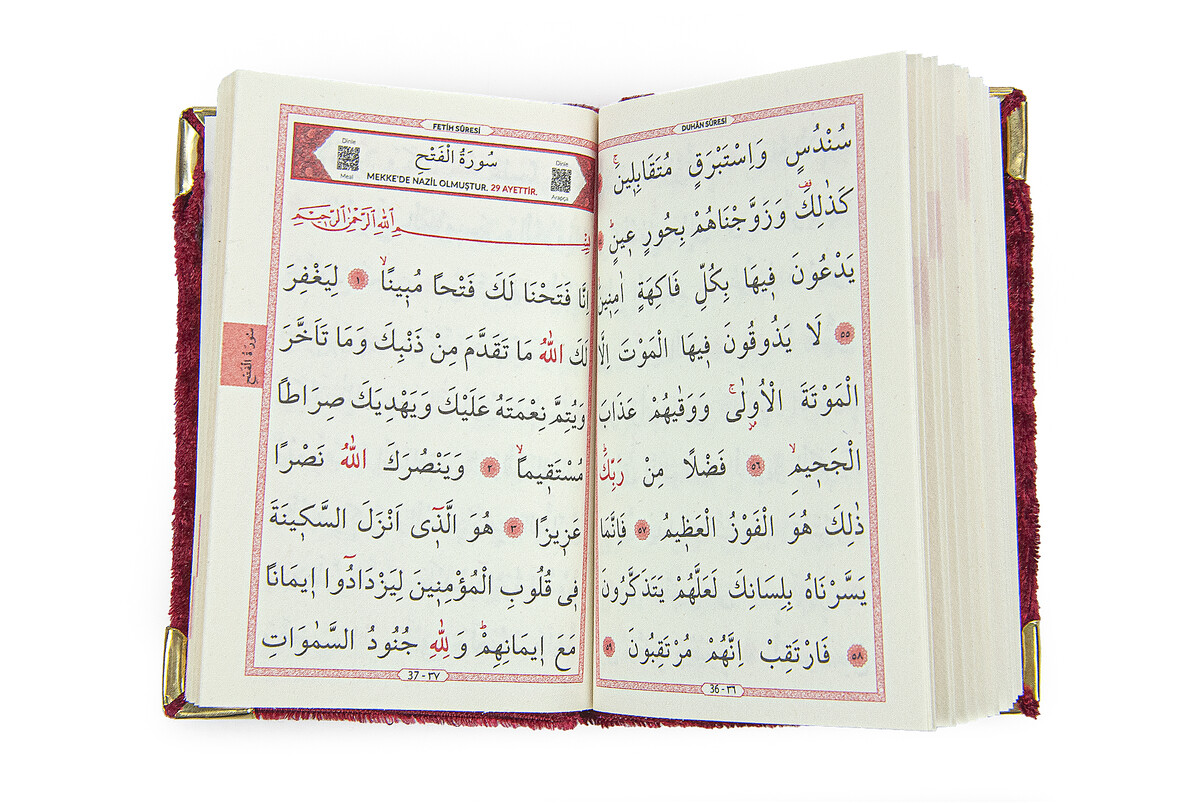 DUHÂN SÛRESİ
سُنْدُسٍ وَاِسْتَبْرَقٍ مُتَقَابِلٖينَۚ
كَذٰلِكَ۠ وَزَوَّجْنَاهُمْ بِحُورٍ عٖينٍۜ
يَدْعُونَ فٖيهَا بِكُلِّ فَاكِهَةٍ اٰمِنٖينَ
٥٥ لَا يَذُوقُونَ فٖيهَا الْمَوْتَ اِلَّا
الْمَوْتَةَ الْاُولٰىۚ وَوَقٰيهُمْ عَذَابَ
الْجَحٖيمِۙ ٥٦ فَضْلًا مِنْ رَبِّكَۜ
ذٰلِكَ هُوَ الْفَوْزُ الْعَظٖيمُ ٥٧ فَاِنَّمَا
يَسَّرْنَاهُ بِلِسَانِكَ لَعَلَّهُمْ يَتَذَكَّرُونَ
٥٨ فَارْتَقِبْ اِنَّهُمْ مُرْتَقِبُونَ ٥٩
36 - ٣٦
FETİH SÛRESİ
Dinle
Arapça
سُورَةُ الْفَتْحِ
Dinle
Meal
MEKKE'DE NAZİL OLMUŞTUR. 29 AYETTİR.
بِسْمِ اللّٰهِ الرَّحْمٰنِ الرَّحٖيمِ
اِنَّا فَتَحْنَا لَكَ فَتْحًا مُبٖينًاۙ ١ لِيَغْفِرَ
لَكَ اللّٰهُ مَا تَقَدَّمَ مِنْ ذَنْبِكَ وَمَا تَاَخَّرَ
وَيُتِمَّ نِعْمَتَهُ عَلَيْكَ وَيَهْدِيَكَ صِرَاطًا
مُسْتَقٖيمًاۙ ٢ وَيَنْصُرَكَ اللّٰهُ نَصْرًا
عَزٖيزًا ٣ هُوَ الَّذٖٓى اَنْزَلَ السَّكٖينَةَ
فٖى قُلُوبِ الْمُؤْمِنٖينَ لِيَزْدَادُٓوا اٖيمَانًا
مَعَ اٖيمَانِهِمْۜ وَلِلّٰهِ جُنُودُ السَّمٰوَاتِ
37 - ٣٧
سُورَةُ الْفَتْحِ